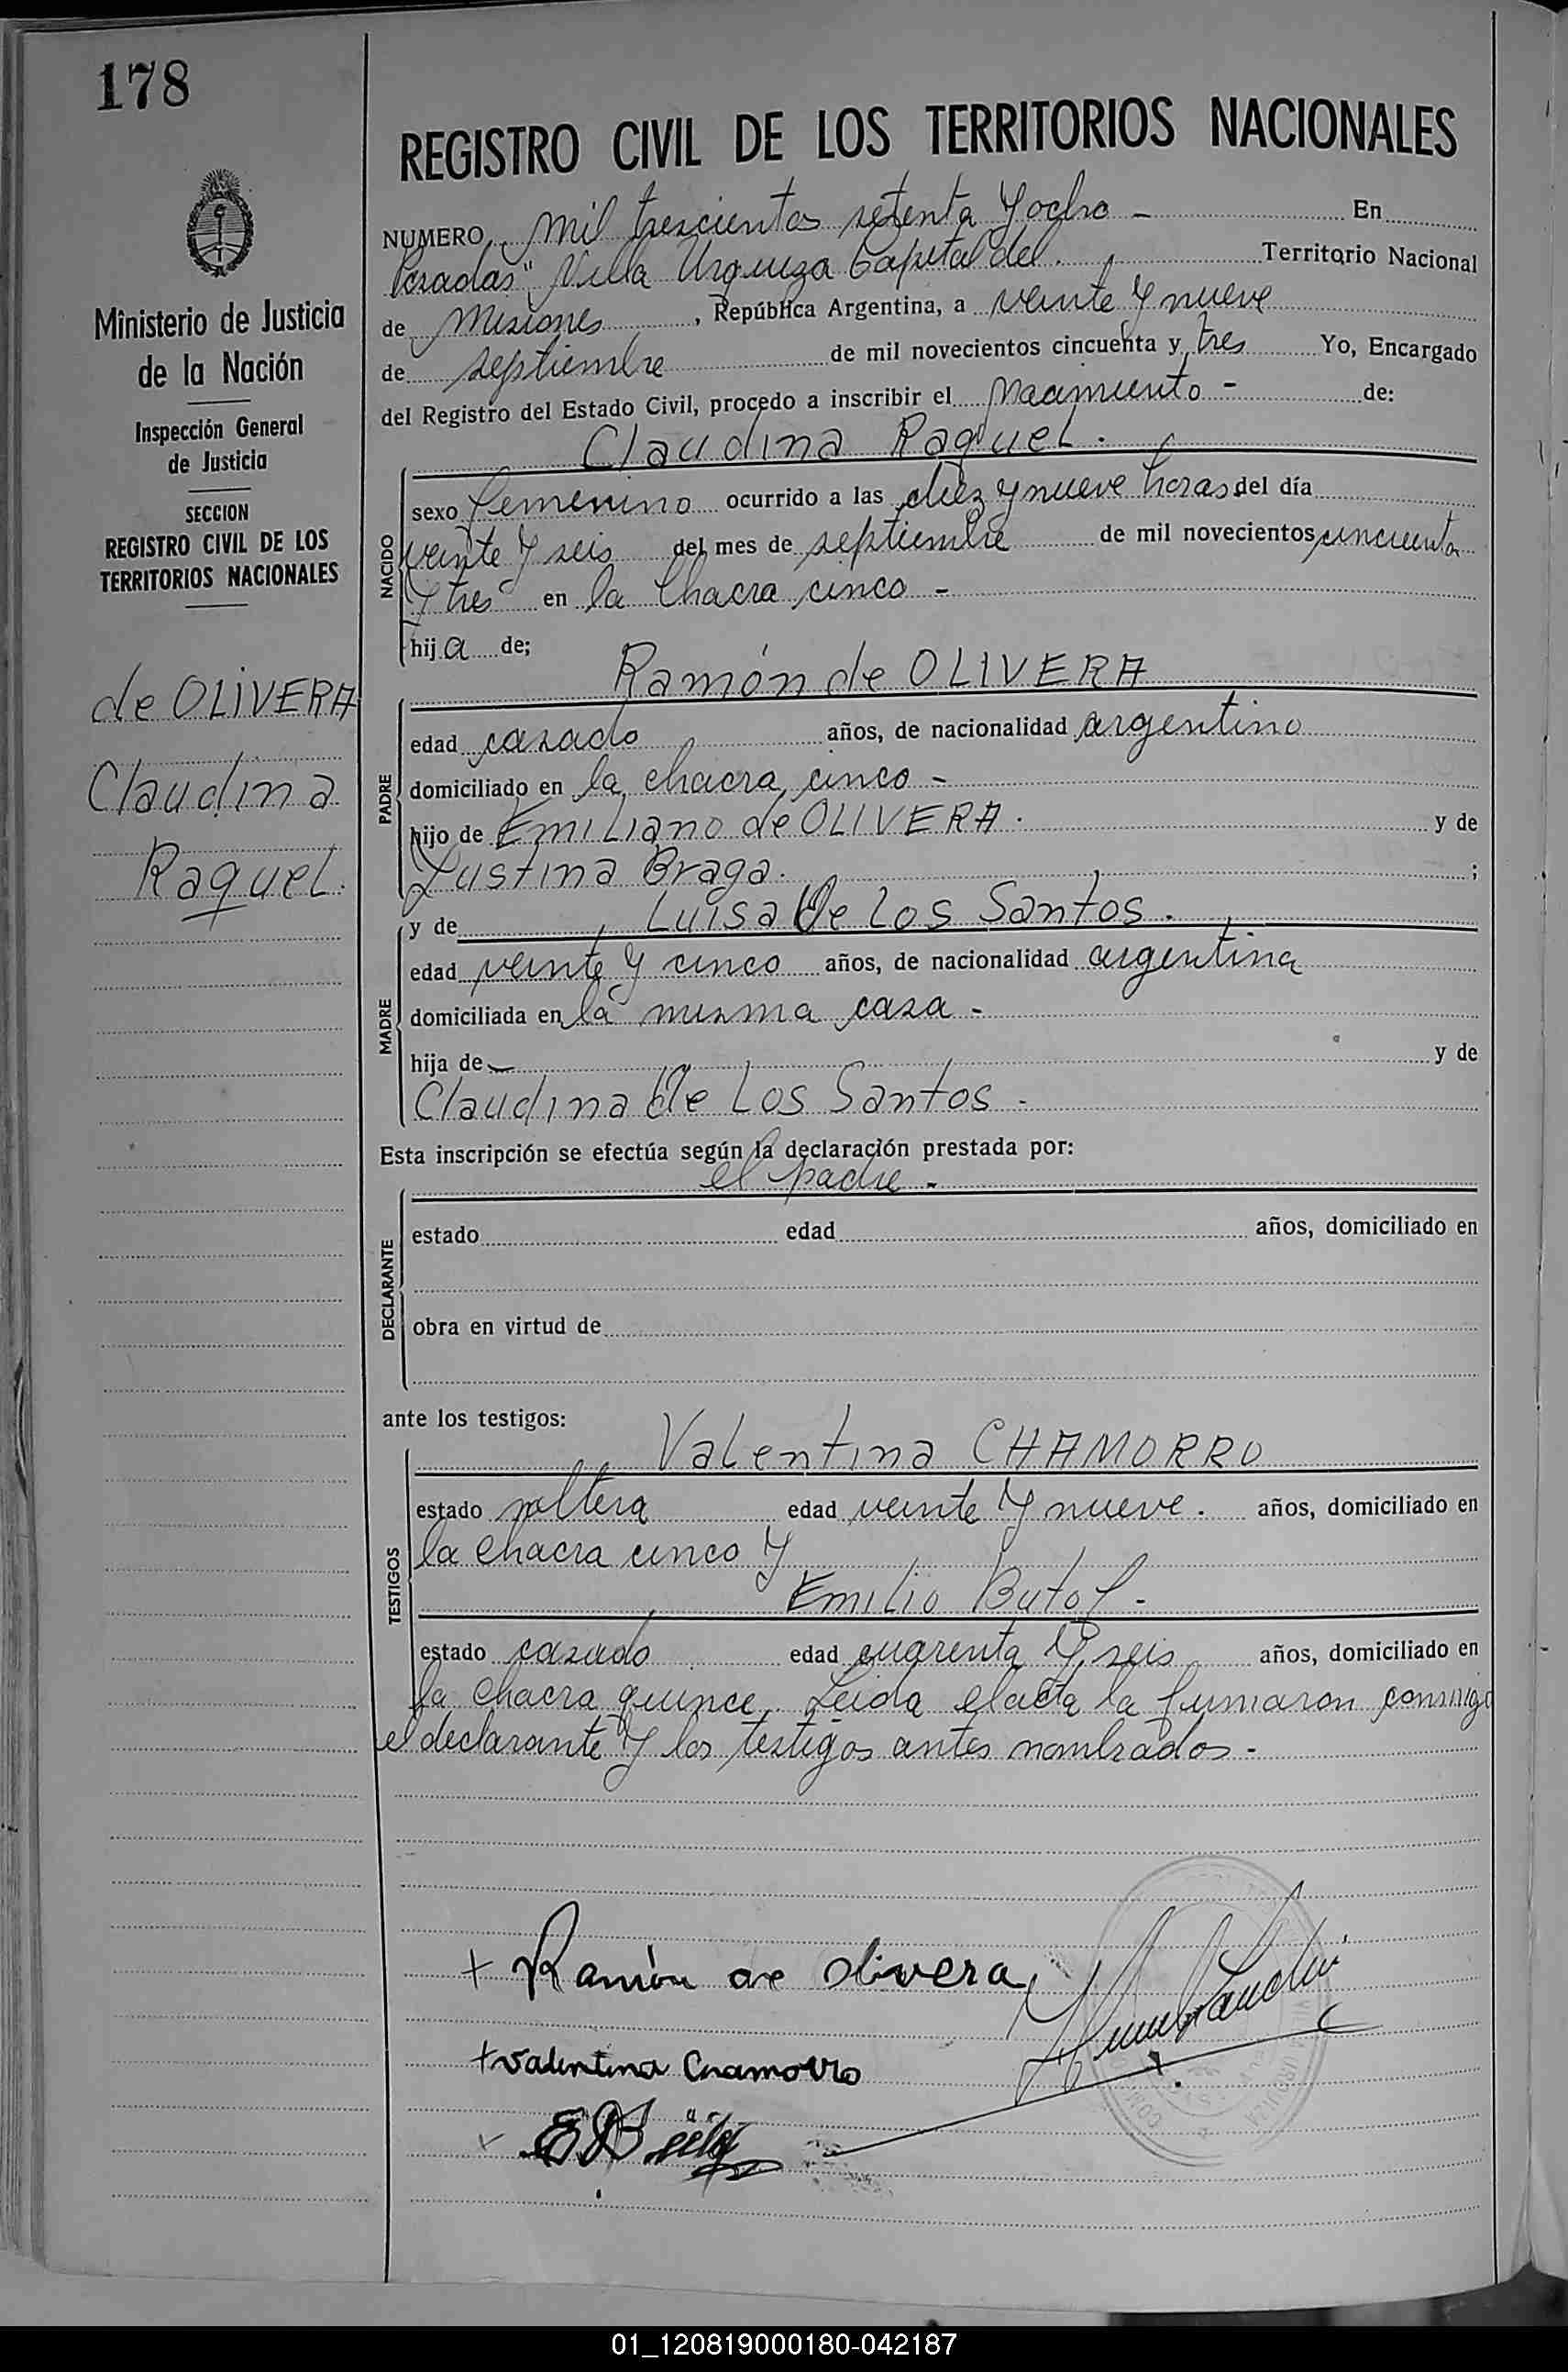 178
REGISTRO CIVIL DE LOS TERRITORIOS NACIONALES
Ministerio de Justicia
de la Nación
Inspección General
de Justicia
SECCION
REGISTRO CIVIL DE LOS
TERRITORIOS NACIONALES
de OLIVERA
Claudina
Raquel.
NUMERO mil trescientos setenta y ocho - En
Posadas" Villa Urquiza Capital del Territorio Nacional
de Misiones, República Argentina, a veinte y nueve
de septiembre de mil novecientos cincuenta y tres Yo, Encargado
del Registro del Estado Civil, procedo a inscribir el Nacimiento - de:
Claudina Raquel.
NACIDO
sexo femenino ocurrido a las diez y nueve horas del día
veinte y seis del mes de septiembre de mil novecientos cincuenta
y tres en la Chacra cinco -
hij a de;
Ramón de OLIVERA
PADRE
edad casado años, de nacionalidad argentino
domiciliado en la chacra cinco -
hijo de Emiliano de OLIVERA. y de
Justina Braga. ;
y de Luisa De Los Santos.
MADRE
edad veinte y cinco años, de nacionalidad argentina
domiciliada en la misma casa -
hija de - y de
Claudina De Los Santos -
Esta inscripción se efectúa según la declaración prestada por:
el padre -
DECLARANTE
estado edad años, domiciliado en
obra en virtud de
ante los testigos:
Valentina CHAMORRO
TESTIGOS
estado soltera edad veinte y nueve. años, domiciliado en
la chacra cinco y
Emilio Butof -
estado casado edad cuarenta y seis años, domiciliado en
la chacra quince. Leida el acta la firmaron conmigo
el declarante y los testigos antes nombrados -
+ Ramón de Olivera
+ Valentina Chamorro
01_120819000180-042187